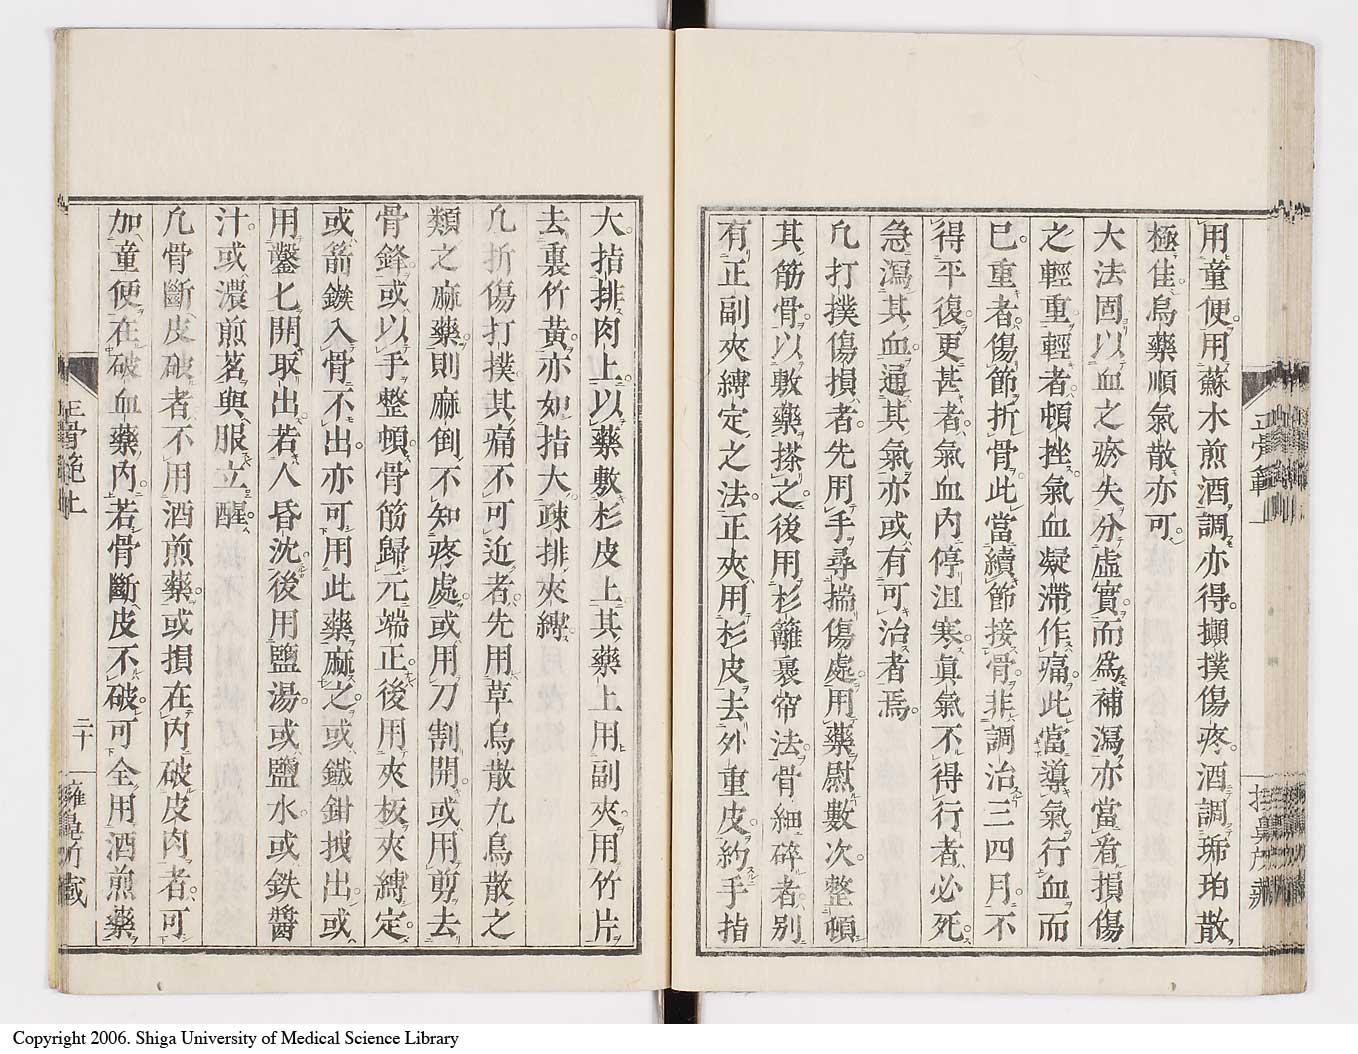 用童便用蘇水煎酒調亦得攧撲傷疼酒調琥珀散
極佳烏藥順氣散亦可
大法固以血之瘀失分虛實而為補瀉亦當看損傷
之輕重輕者頓挫氣血凝滯作痛此當導氣行血而
已重者傷節折骨此當續節接骨非調治三四月不
得平復更甚者氣血內停沮寒真氣不得行者必死
急瀉其血通其氣亦或有可治者焉
凢打撲傷損者先用手尋揣傷處用藥慰數次整頓
其筋骨以敷藥搽之後用杉籬裹帘法骨細碎者別
有正副夾縛定之法正夾用杉皮去外重皮約手指
正骨範上
大指排肉上以藥敷杉皮上其藥上用副夾用竹片
去裏竹黃亦如指大疎排夾縛
凢折傷打撲其痛不可近者先用草烏散九烏散之
類之麻藥則麻倒不知疼處或用刀割開或用剪去
骨鋒或以手整頓骨筋歸元端正後用夾板夾縛定
或箭鏃入骨不出亦可用此藥麻之或鐵鉗拽出或
用鑿匕開取出若人昏沈後用鹽湯或鹽水或鉄醬
汁或濃煎茗與服立醒
凢骨斷皮破者不用酒煎藥或損在內破皮肉者可
加童便在破血藥內若骨斷皮不破可全用酒煎藥
正骨範上
二十
擁鼻所藏
Copyright 2006. Shiga University of Medical Science Library